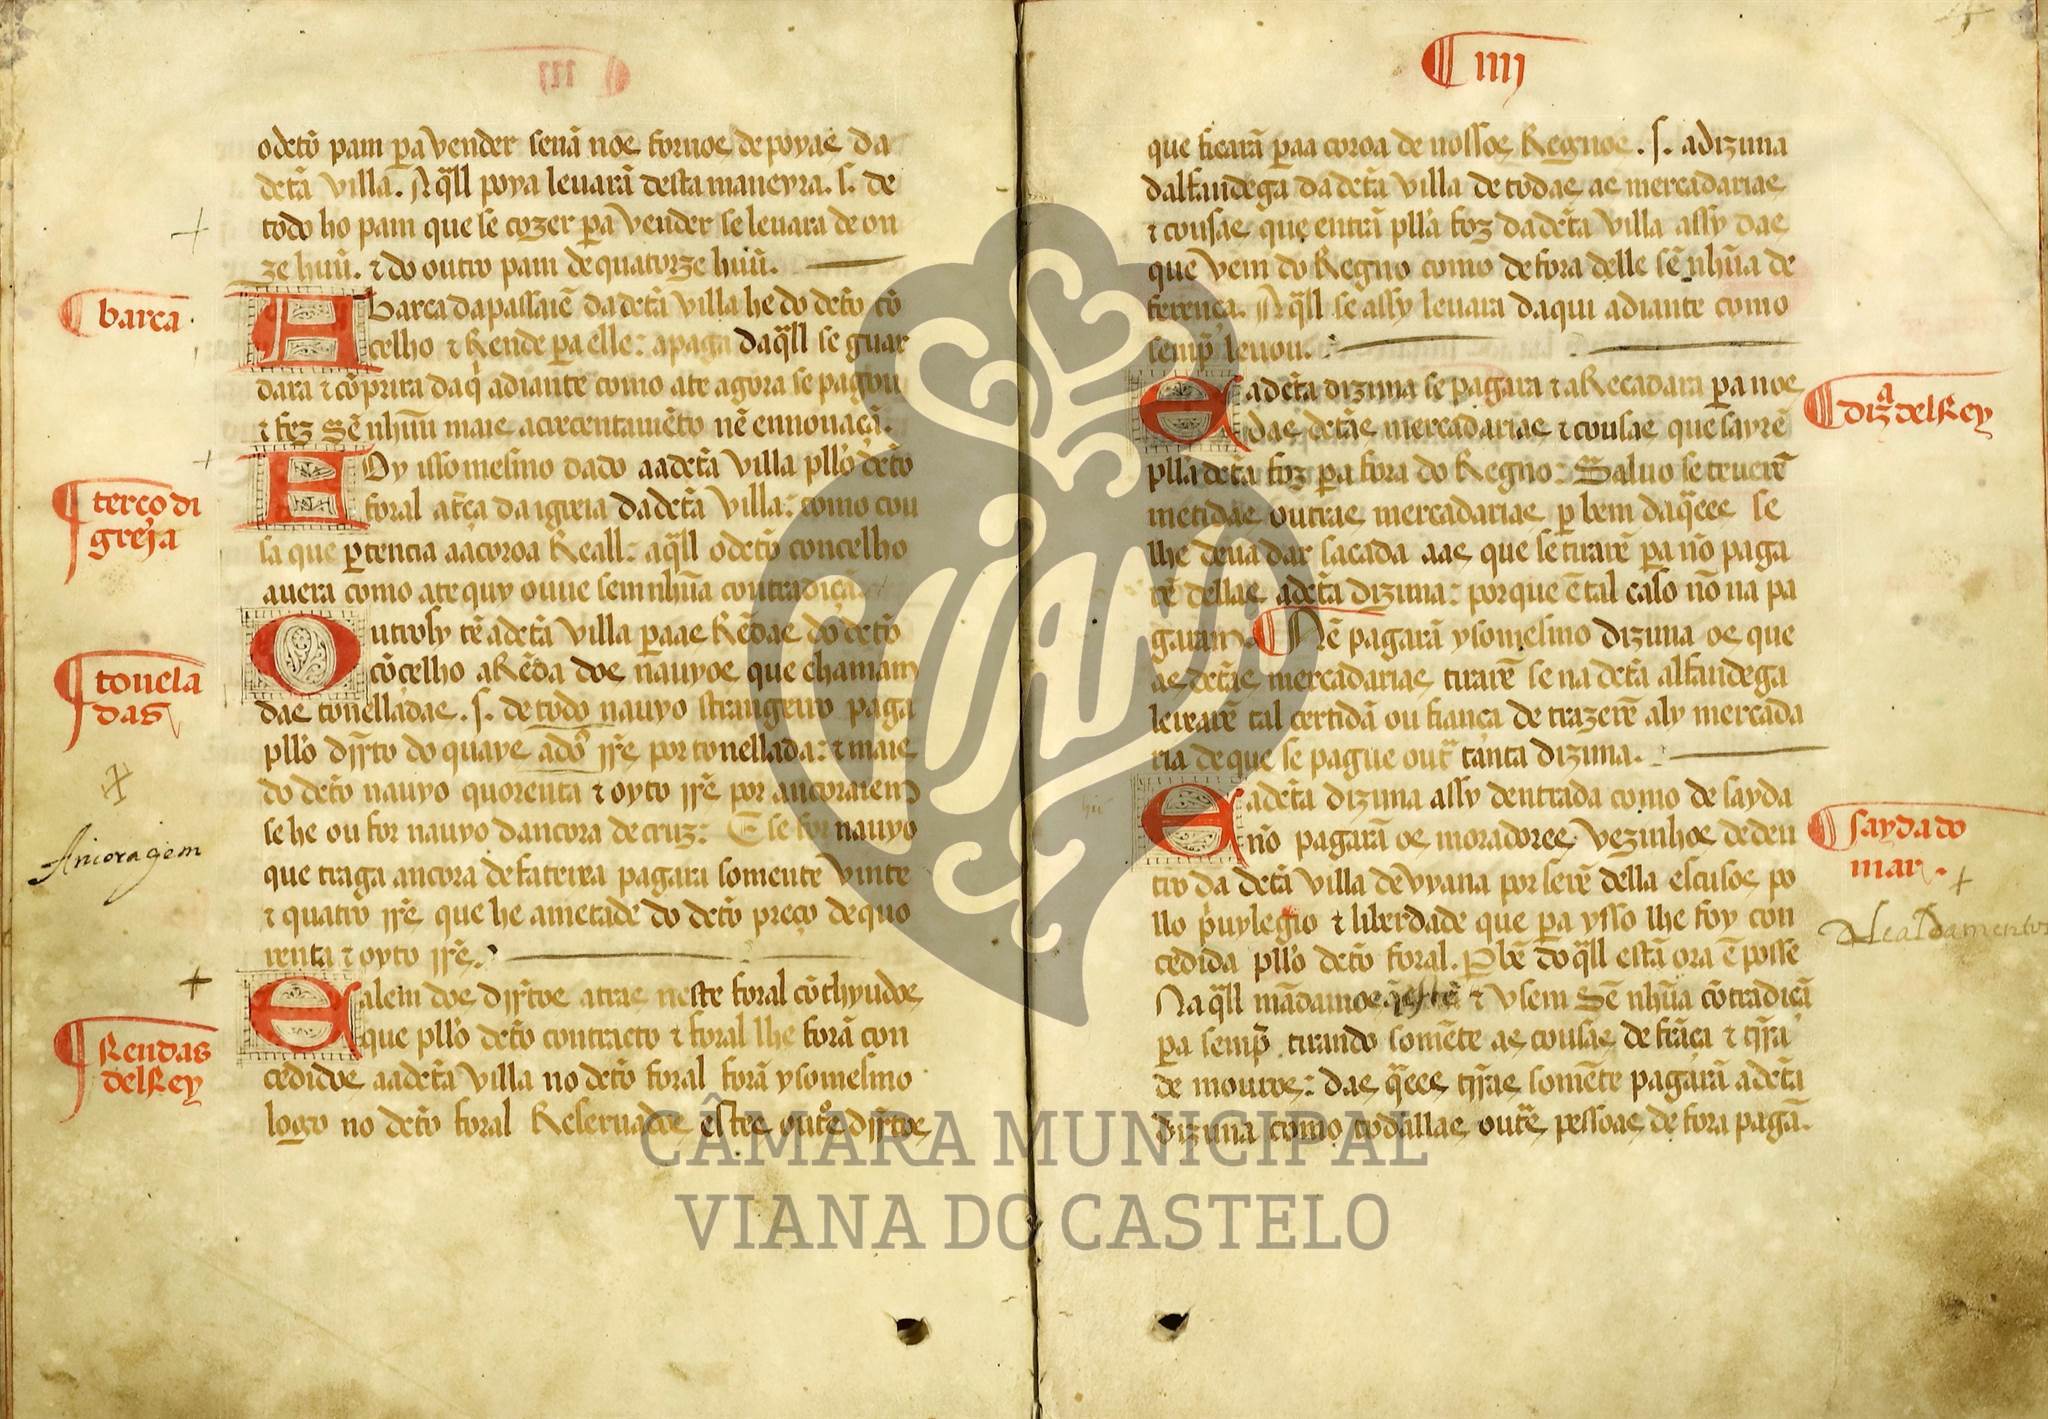 odeto᷉ pam ꝑa vender senã nos fornos de poyas da
deta᷉ villa. A q̃ll poya leuarã desta maneyra. s. de
todo ho pam que se cozer ꝑa vender se leuara de on
ze huũ. ⁊ do outro pam de quatorze huũ.
barca
A barca da passajẽ da deta᷉ villa he do deto᷉ cõ
celho ⁊ Rende ꝑa elle: a paga da q̃ll se guar
dara ⁊ cõprira daq̃ adiante como ate agora se pagou
⁊ fez Sẽ nhuũ mais acrecentamẽto nẽ ennouaçã.
terço di
greja
Foy isso mesmo dado aa deta᷉ villa pllo deto᷉
foral a tr̃ça da igreia da deta᷉ villa: como cou
sa que ꝑtencia aa coroa Reall: a q̃ll o deto᷉ concelho
auera como ate quy ouue sem nhũa contradiçã.
tonela
das
Outrosy tẽ a deta᷉ villa ꝑa as Rẽdas do deto᷉
cõcelho a Rẽda dos nauyos que chamam
das tonelladas. s. de todo nauyo strangeiro paga
pllo dirr̃to do quaye a doˢ rr̃s por tonellada: ⁊ mais
do deto᷉ nauyo quorenta ⁊ oyto rr̃s por ancorajem
se he ou for nauyo dancora de cruz: E se for nauyo
Ancoragem
que traga ancora de fateixa pagara somente vinte
⁊ quatro rr̃s que he a metade do deto᷉ preço de quo
renta ⁊ oyto rr̃s.
Rendas
delRey
E alem dos dirr̃tos atras neste foral cõthyudos
que pllo deto᷉ contracto ⁊ foral lhe forã con
cedidos aa deta᷉ villa no deto᷉ foral forã ysomesmo
logo no deto᷉ foral Reseruados estes outᵒs dirr̃tos
IIIJ
que ficarã ꝑa a coroa de nossos Regnos. s. a dizima
dalfandega da deta᷉ villa de todas as mercadarias
⁊ cousas que entrã plla foz da deta᷉ villa assy das
que vem do Regno como de fora delle sẽ nhũa de
ferença. A q̃ll se assy leuara daqui adiante como
semp̃ leuou.
dizᵃ delRey
E a deta᷉ dizima se pagara ⁊ a Recadara ꝑa nos
das deta᷉s mercadarias ⁊ cousas que sayrẽ
plla deta᷉ foz ꝑa fora do Regno: Saluo se teuerẽ
metidas outras mercadarias ꝑ bem das q̃ees se
lhe deua dar sacada aas que se tirarẽ ꝑa nõ paga
rẽ dellas a deta᷉ dizima: porque ẽ tal caso nõ na pa
garam. Nẽ pagarã ysomesmo dizima os que
as deta᷉s mercadarias tirarẽ se na deta᷉ alfandega
leixarẽ tal certidã ou fiança de trazerẽ aly mercada
ria de que se pague outᵃ tanta dizima.
sayda do
mar.
E a deta᷉ dizima assy dentrada como de sayda
nõ pagarã os moradores vezinhos de den
tro da deta᷉ villa de vyana por serẽ della escusos po
Alealdamentos
llo puylegio ⁊ liberdade que ꝑa ysso lhe foy con
cedida pllo deto᷉ foral. Per bẽ do q̃ll estã ora ẽ posse
Na q̃ll mãdamos q̃ estẽ ⁊ vsem Sẽ nhũa cõtradiçã
ꝑa semp̃ tirando somẽte as cousas de frãça ⁊ trr̃a
de mouros: das q̃ees trr̃as somẽte pagarã a deta᷉
dizima como todallas outᵃs pessoas de fora pagã.
CÂMARA MUNICIPAL
VIANA DO CASTELO